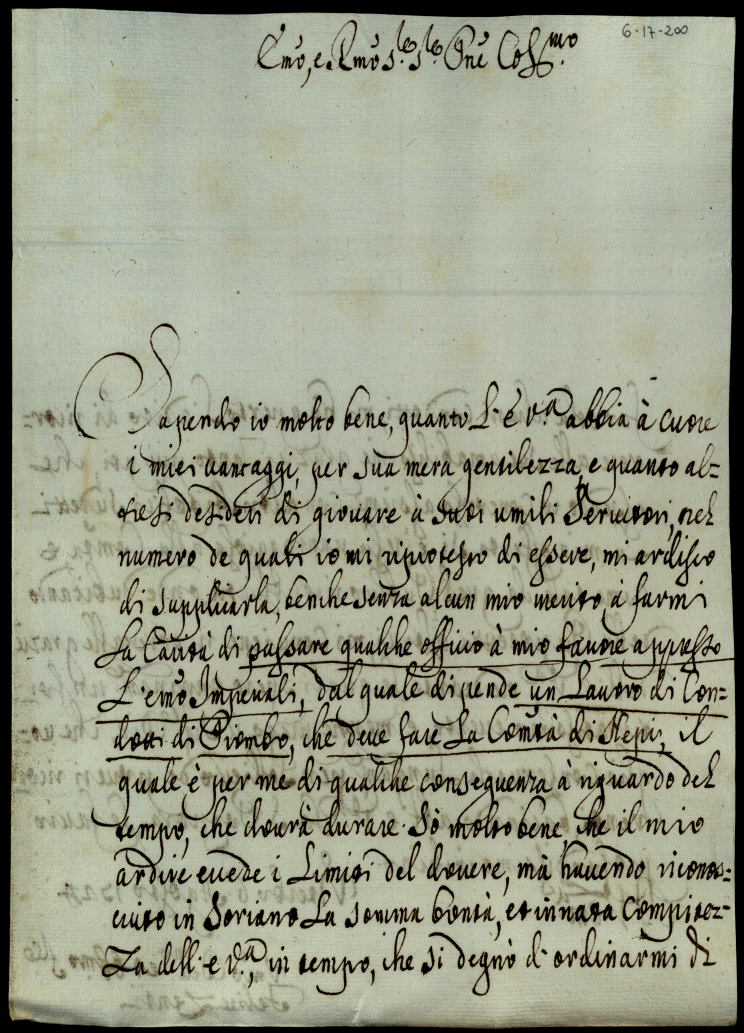 6-17-200
Emo, e Rmo Sre Sre Pne Colmo
Sapendo io molto bene, quanto L'E Va abbia à cuore
i miei vantaggi, per sua mera gentilezza, e quanto al=
tresi desideri di giovare à suoi umili Servitori, nel
numero de quali io mi riputo di essere, mi ardisco
di supplicarla, benche senza alcun mio merito, à farmi
La Carità di passare qualche officio à mio favore appresso
L'emo Imperiali, dal quale dipende un Lavoro di Con=
dotti di Piombo, che deve fare La Comtà di Nepi, il
quale è per me di qualche conseguenza à riguardo del
tempo, che dovrà durare. Sò molto bene, che il mio
ardire eccede i Limiti del dovere, mà havendo riconos=
ciuto in Soriano La somma bontà, et innata compitez=
za dell'e Va, in tempo, che si degnò d'ordinarmi di